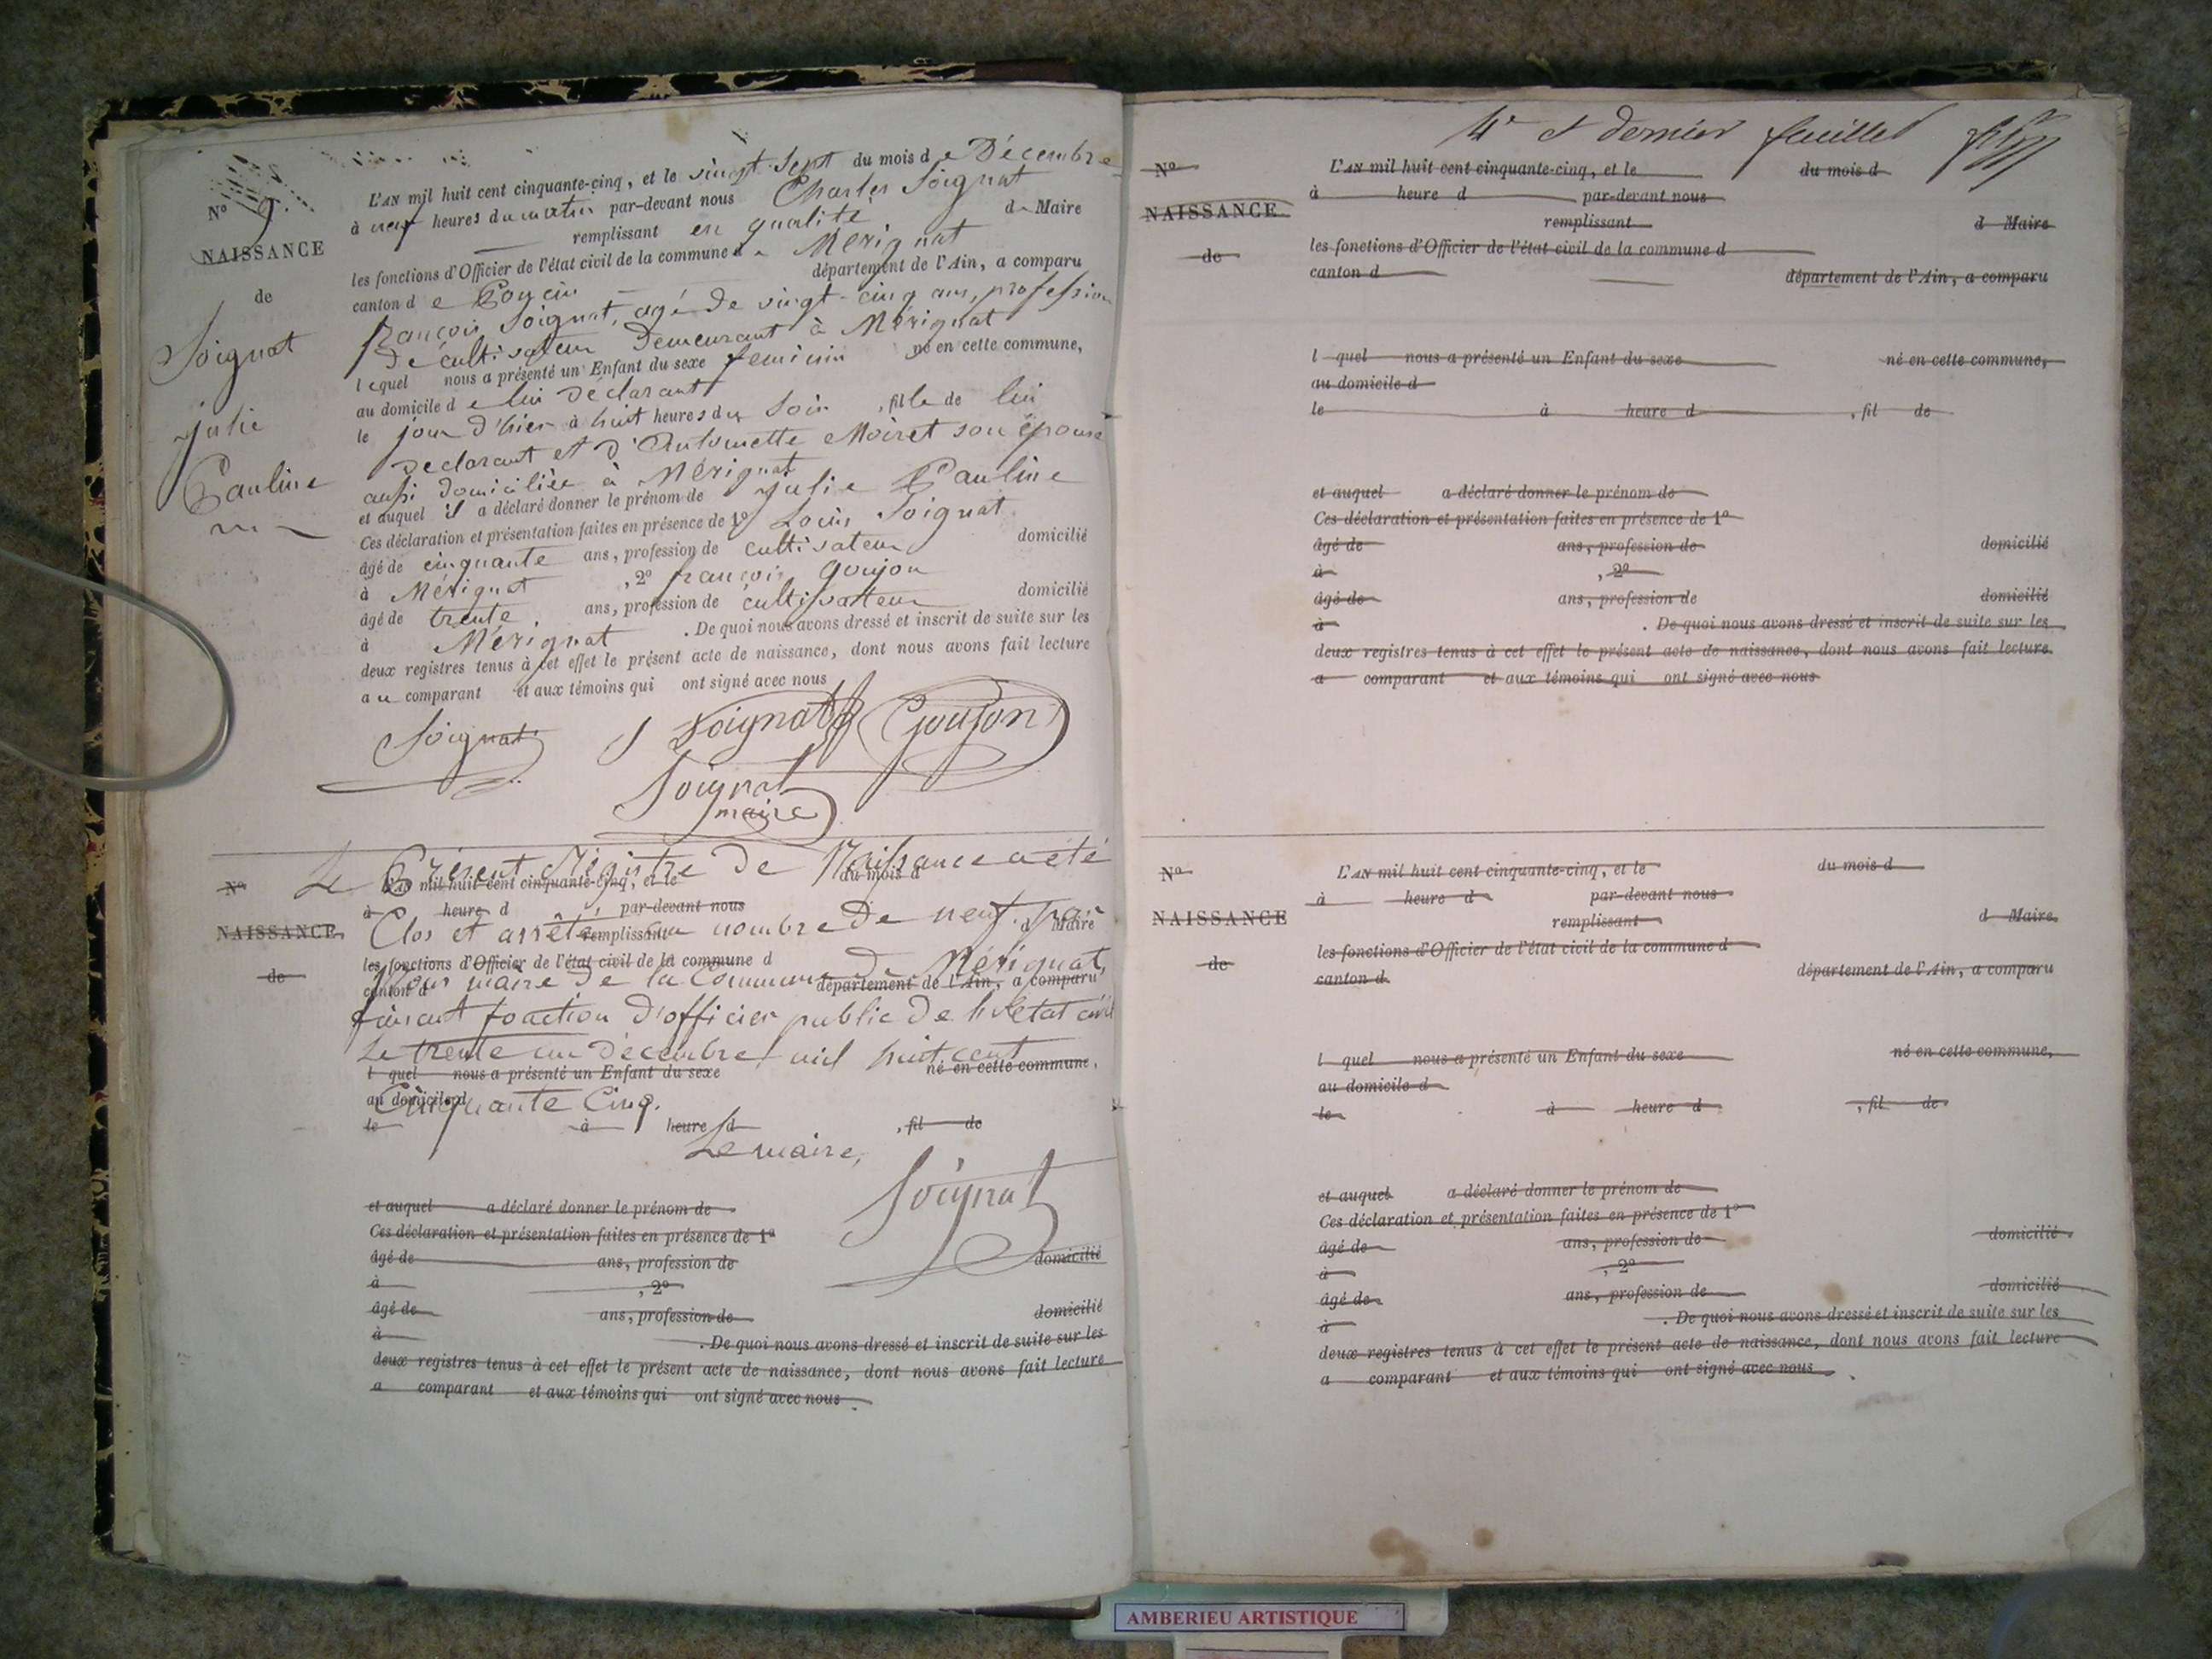 L'AN mil huit cent cinquante-cinq, et le vingt Sept du mois de Décembre
à neuf heures du matin par-devant nous Charles Soignat
remplissant en qualité de Maire
les fonctions d'Officier de l'état civil de la commune de Mérignat
canton de Poncin département de l'Ain, a comparu
françois Soignat, agé de vingt-cinq ans, profession
de cultivateur demeurant à Mérignat
lequel nous a présenté un Enfant du sexe feminin né en cette commune,
au domicile de lui déclarant
le jour d'hier à huit heures du Soir, fille de lui
déclarant et d'Antoinette Moiret son épouse
aussi domiciliée à Mérignat
et auquel il a déclaré donner le prénom de Julie Pauline
Ces déclaration et présentation faites en présence de 1º Louis Soignat
âgé de cinquante ans, profession de cultivateur domicilié
à Mérignat, 2º françois Goujon
âgé de trente ans, profession de cultivateur domicilié
à Mérignat. De quoi nous avons dressé et inscrit de suite sur les
deux registres tenus à cet effet le présent acte de naissance, dont nous avons fait lecture
au comparant et aux témoins qui ont signé avec nous
Nº 9
NAISSANCE
de
Soignat
Julie
Pauline
Soignat Soignat Goujon
Soignat
maire
Le Présent Régistre de Naissance a été
Nº L'AN mil huit cent cinquante-cinq, et le du mois d
à heure d par-devant nous
Clos et arrêté au nombre de neuf. par
NAISSANCE remplissant d Maire
les fonctions d'Officier de l'état civil de la commune d
de
Nous maire de la Commune de Mérignat,
canton d département de l'Ain, a comparu
faisant fonction d'officier public de l'etat civil
Le trente un décembre mil huit cent
l quel nous a présenté un Enfant du sexe né en cette commune,
au domicile d
Cinquante Cinq.
le à heure d , fil de
Le maire,
Soignat
et auquel a déclaré donner le prénom de
Ces déclaration et présentation faites en présence de 1º
âgé de ans, profession de domicilié
à , 2º
âgé de ans, profession de domicilié
à . De quoi nous avons dressé et inscrit de suite sur les
deux registres tenus à cet effet le présent acte de naissance, dont nous avons fait lecture
a comparant et aux témoins qui ont signé avec nous
4e et dernier feuillet
Nº L'AN mil huit cent cinquante-cinq, et le du mois d
à heure d par-devant nous
NAISSANCE remplissant d Maire
de les fonctions d'Officier de l'état civil de la commune d
canton d département de l'Ain, a comparu
l quel nous a présenté un Enfant du sexe né en cette commune,
au domicile d
le à heure d , fil de
et auquel a déclaré donner le prénom de
Ces déclaration et présentation faites en présence de 1º
âgé de ans, profession de domicilié
à , 2º
âgé de ans, profession de domicilié
à . De quoi nous avons dressé et inscrit de suite sur les
deux registres tenus à cet effet le présent acte de naissance, dont nous avons fait lecture
a comparant et aux témoins qui ont signé avec nous
Nº L'AN mil huit cent cinquante-cinq, et le du mois d
à heure d par-devant nous
NAISSANCE remplissant d Maire
les fonctions d'Officier de l'état civil de la commune d
de
canton d département de l'Ain, a comparu
l quel nous a présenté un Enfant du sexe né en cette commune,
au domicile d
le à heure d , fil de
et auquel a déclaré donner le prénom de
Ces déclaration et présentation faites en présence de 1º
âgé de ans, profession de domicilié
à , 2º
âgé de ans, profession de domicilié
à . De quoi nous avons dressé et inscrit de suite sur les
deux registres tenus à cet effet le présent acte de naissance, dont nous avons fait lecture
a comparant et aux témoins qui ont signé avec nous
AMBERIEU ARTISTIQUE